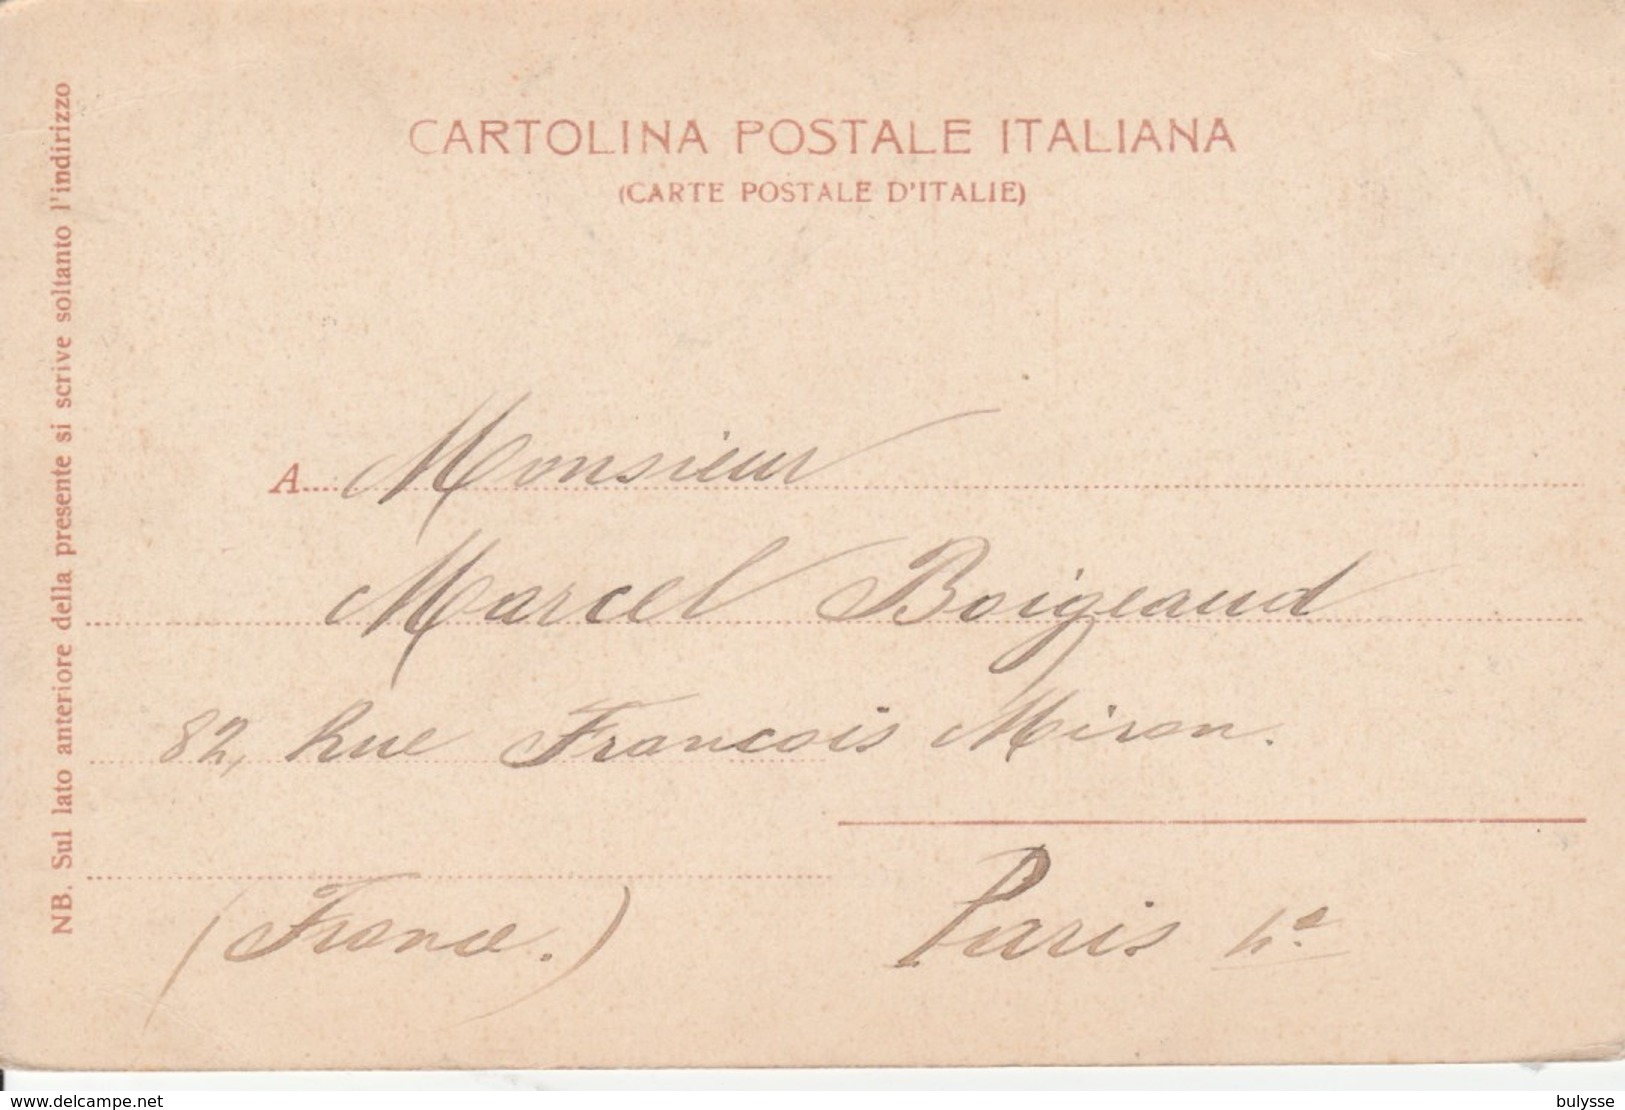 CARTOLINA POSTALE ITALIANA
(CARTE POSTALE D'ITALIE)
NB. Sul lato anteriore della presente si scrive soltanto l'indirizzo
A Monsieur
Marcel Boigeaud
82, Rue Francois Miron.
Paris 4e
(France.)
www.delcampe.net
bulysse